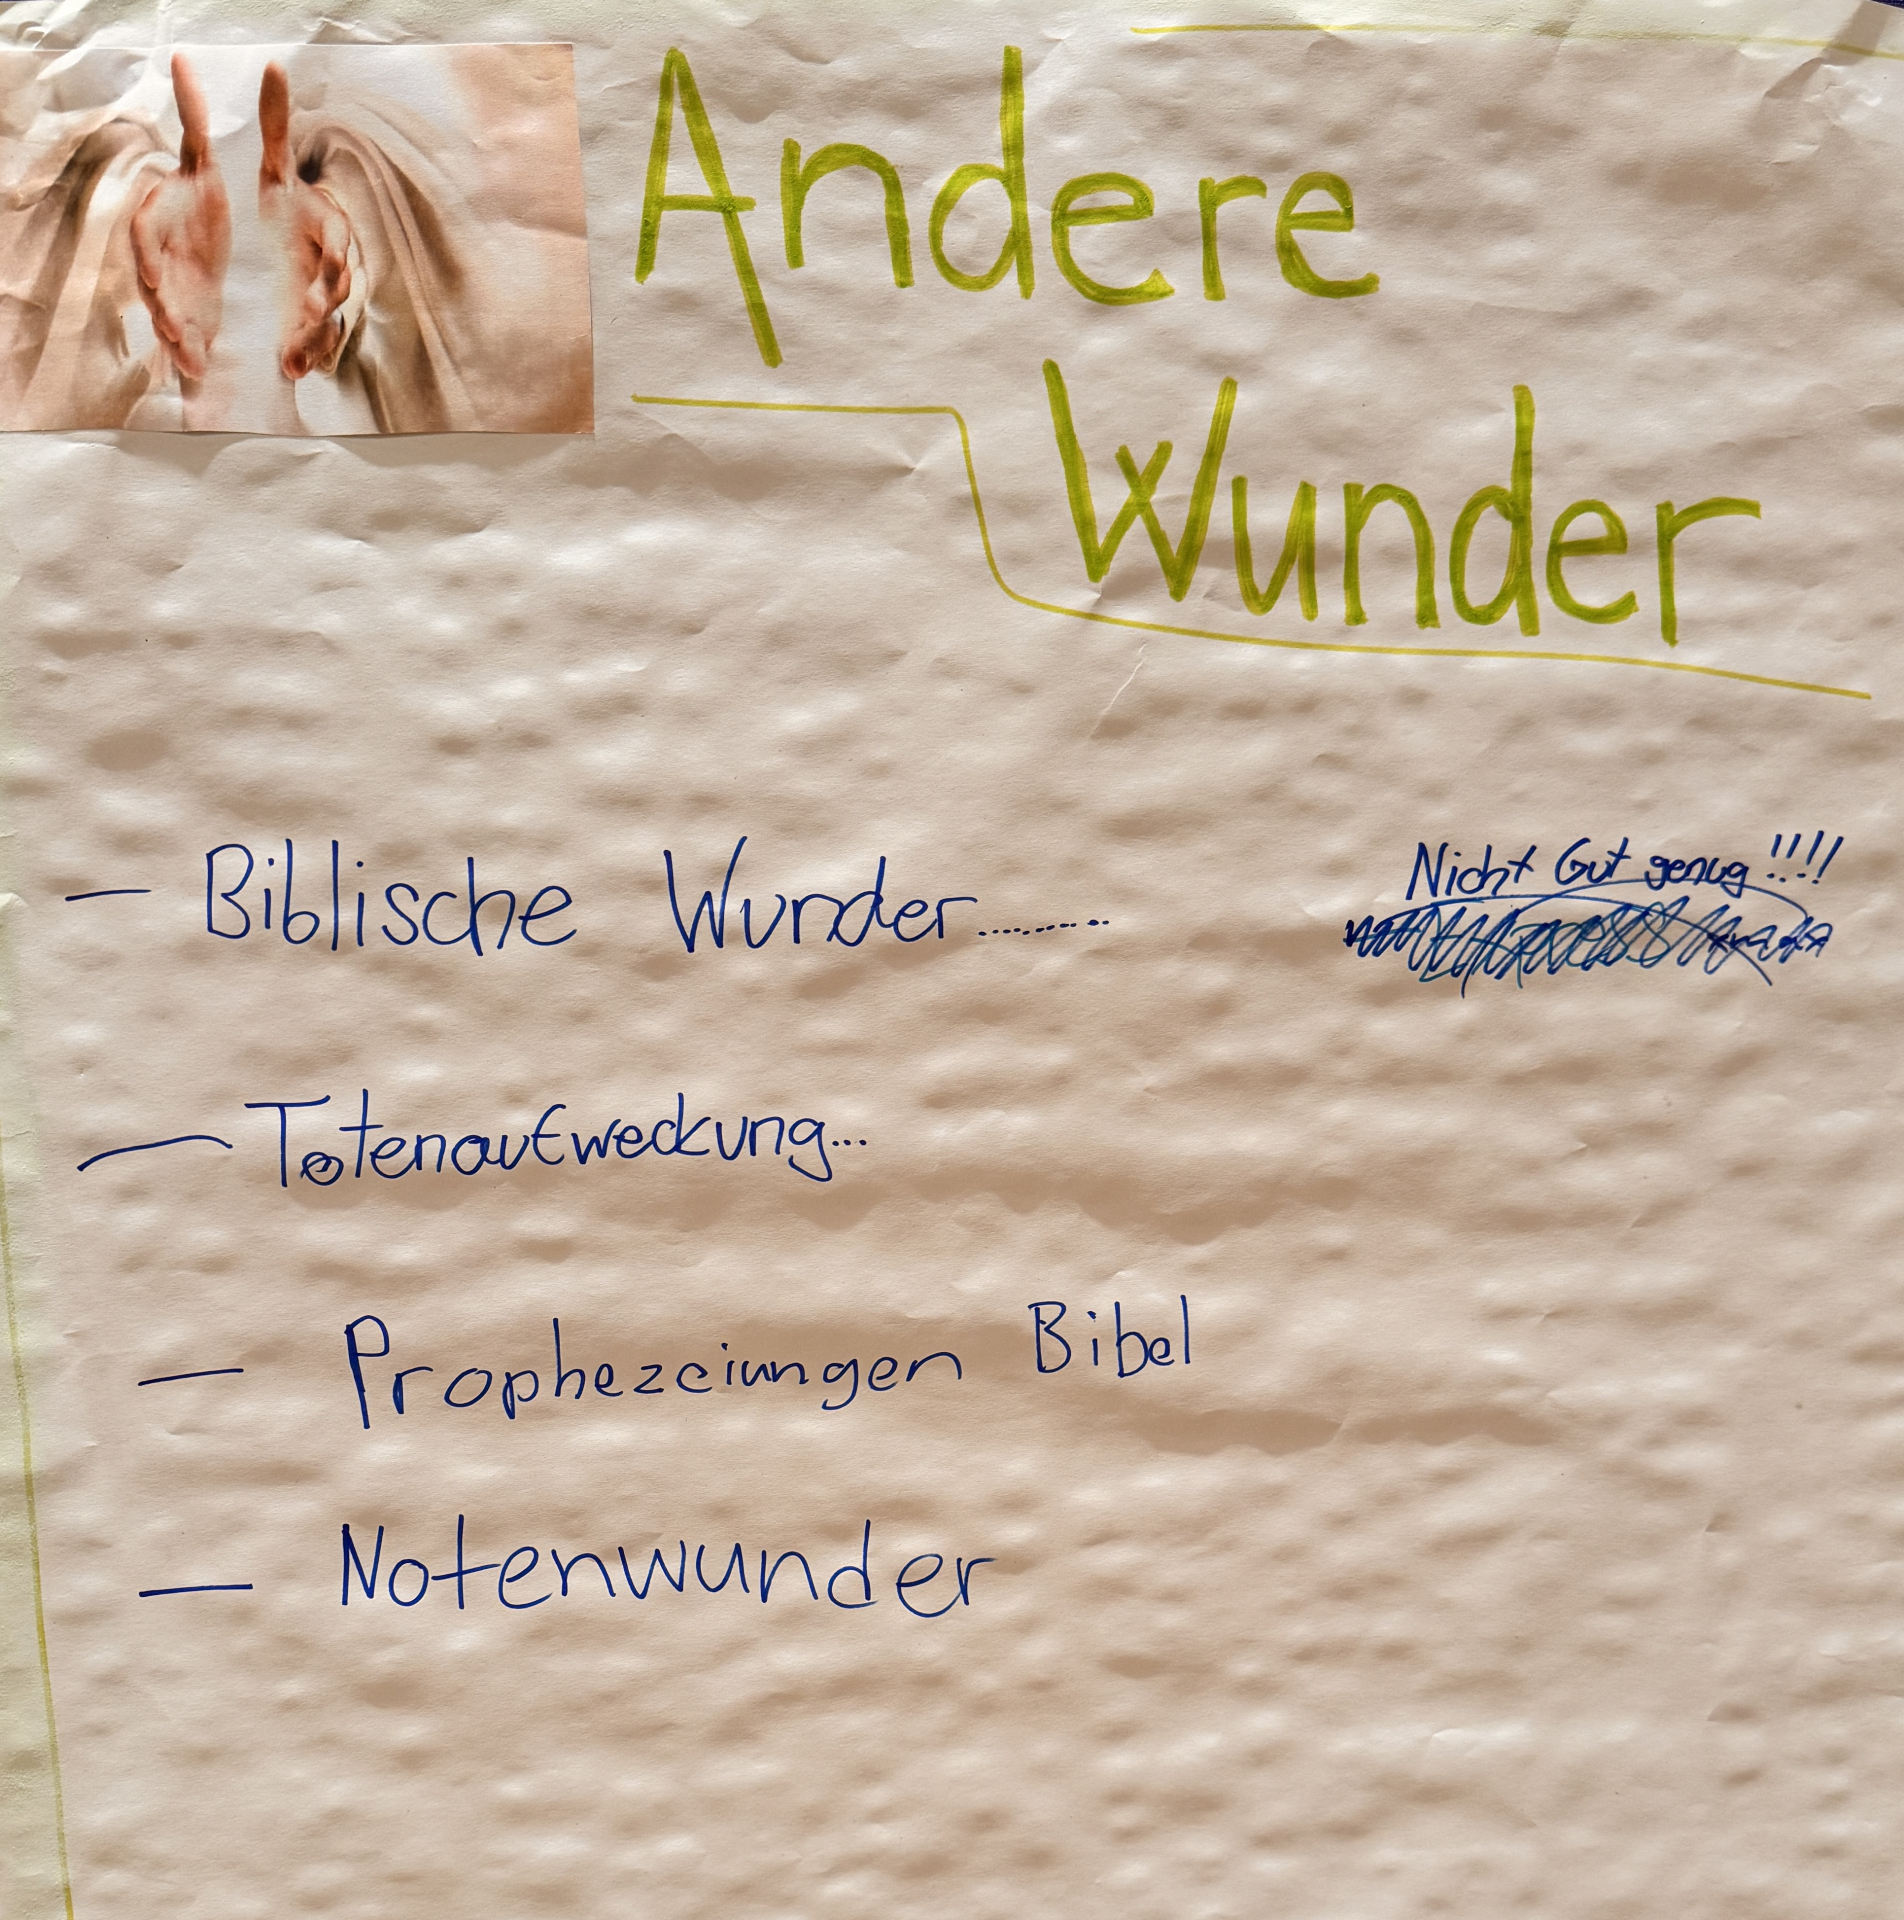 Andere
Wunder
- Biblische Wunder.........
Nicht Gut genug!!!!
- Totenaufweckung...
- Prophezeiungen Bibel
- Notenwunder